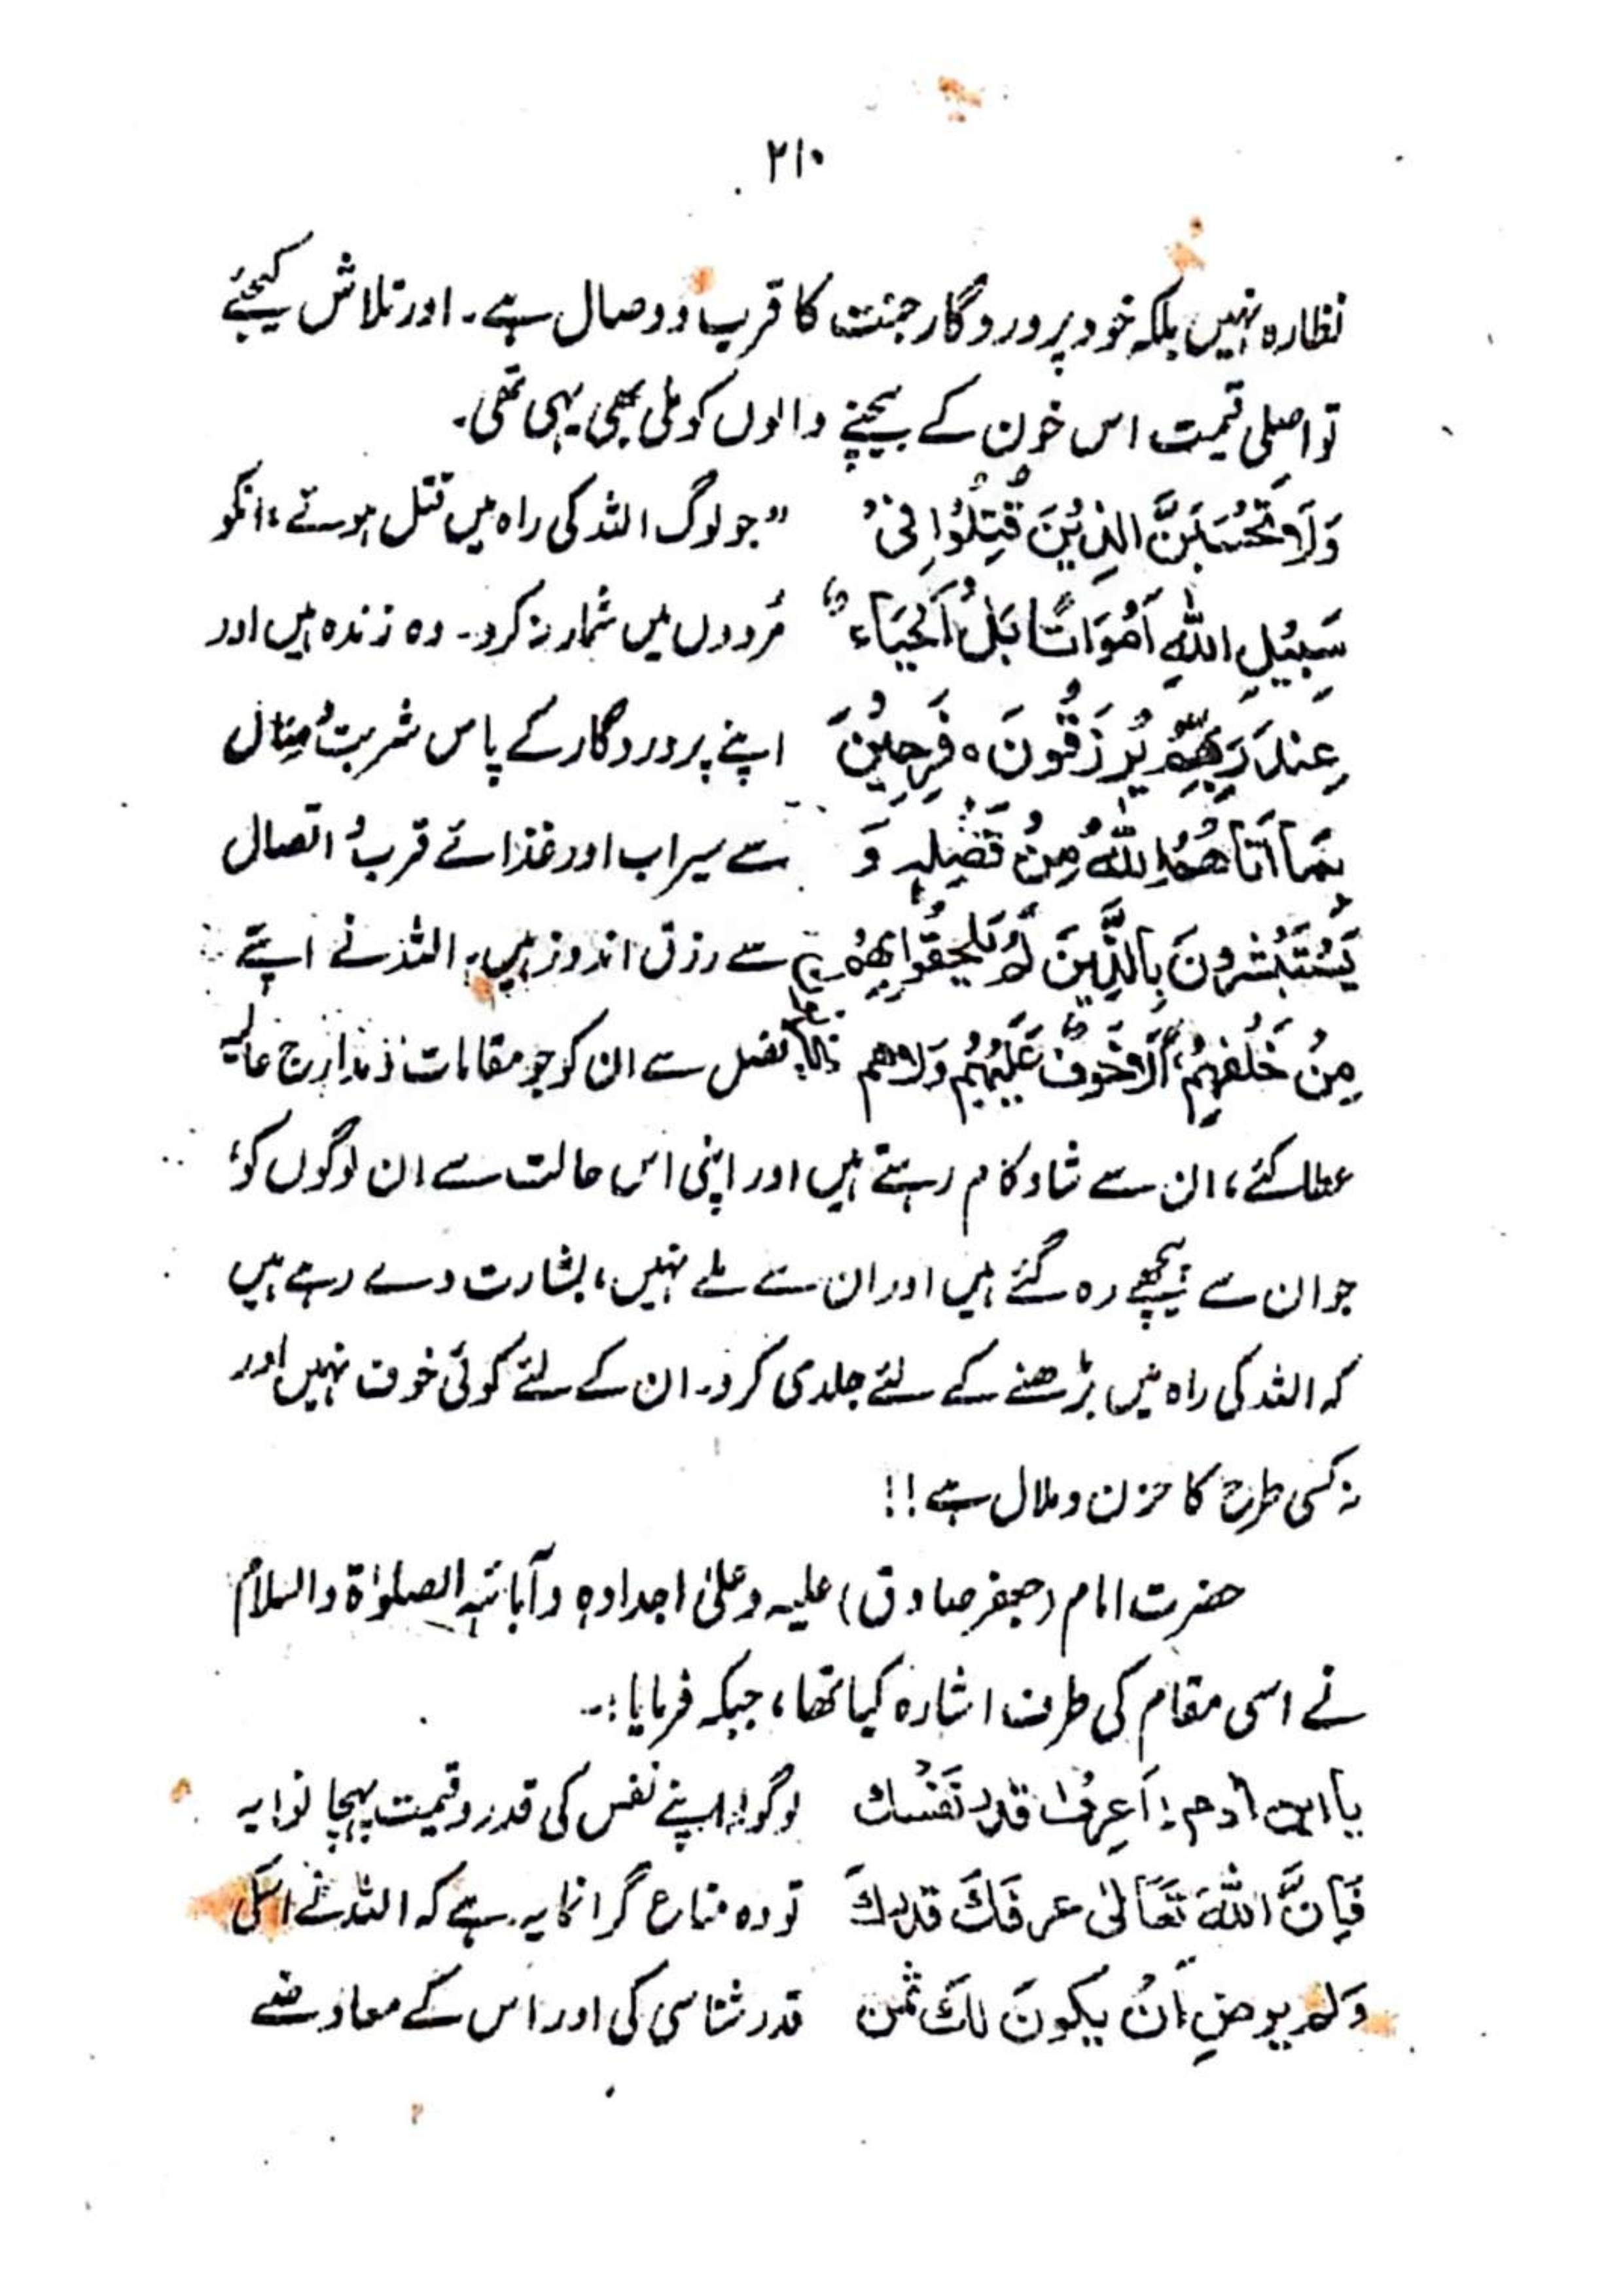 ۲۱۰
نظارہ نہیں بلکہ خود پروردگار جنت کا قرب و وصال ہے۔ اور تلاش کیجئے
تو اصلی قیمت اس خون کے بیچنے والوں کو ملی بھی یہی تھی۔
وَلَا تَحْسَبَنَّ الَّذِيْنَ قُتِلُوْا فِیْ "جو لوگ اللہ کی راہ میں قتل ہوئے، انکو
سَبِيْلِ اللهِ اَمْوَاتًا بَلْ اَحْيَاء مُردوں میں شمار نہ کرو۔ وہ زندہ ہیں اور
عِنْدَ رَبِّهِمْ يُرْزَقُونَ ه فَرِحِيْنَ اپنے پروردگار کے پاس شربتُ مِنال
بِمَا اَتَاهُمُ اللهُ مِنْ فَضْلِهِ وَ سے سیراب اور غذائے قرب و اتصال
يَسْتَبْشِرُونَ بِالَّذِينَ لَمْ يَلْحَقُوا بِهِمْ سے رزق اندوز ہیں، اللہ نے اپنے
مِنْ خَلْفِهِمْ اَلَّا خَوْفٌ عَلَيْهِمْ وَلَا هم فضل سے ان کو جو مقامات و مدارج عالیہ
عطا کئے، ان سے شاد کام رہتے ہیں اور اپنی اس حالت سے ان لوگوں کو،
جو ان سے پیچھے رہ گئے ہیں اور ان سے ملے نہیں، بشارت دے رہے ہیں
کہ اللہ کی راہ میں بڑھنے کے لئے جلدی کرو۔ ان کے لئے کوئی خوف نہیں اور
نہ کسی طرح کا حزن و ملال ہے!!
حضرت امام (جعفر صادق) علیہ وعلیٰ اجدادہ وآبائہ الصلوٰۃ والسلام
نے اسی مقام کی طرف اشارہ کیا تھا، جبکہ فرمایا:۔
یا ابن آدم! اَعرِفْ قدر نَفْسك لوگو! اپنے نفس کی قدر و قیمت پہچانو! یہ
فَاِنَّ اللهَ تَعَالیٰ عرفَكَ قدركَ تو وہ متاع گرانمایہ ہے کہ اللہ نے اسکی
وَلم يرضِ اَنْ يكونَ لكَ ثمن قدر شناسی کی اور اس کے معاوضے